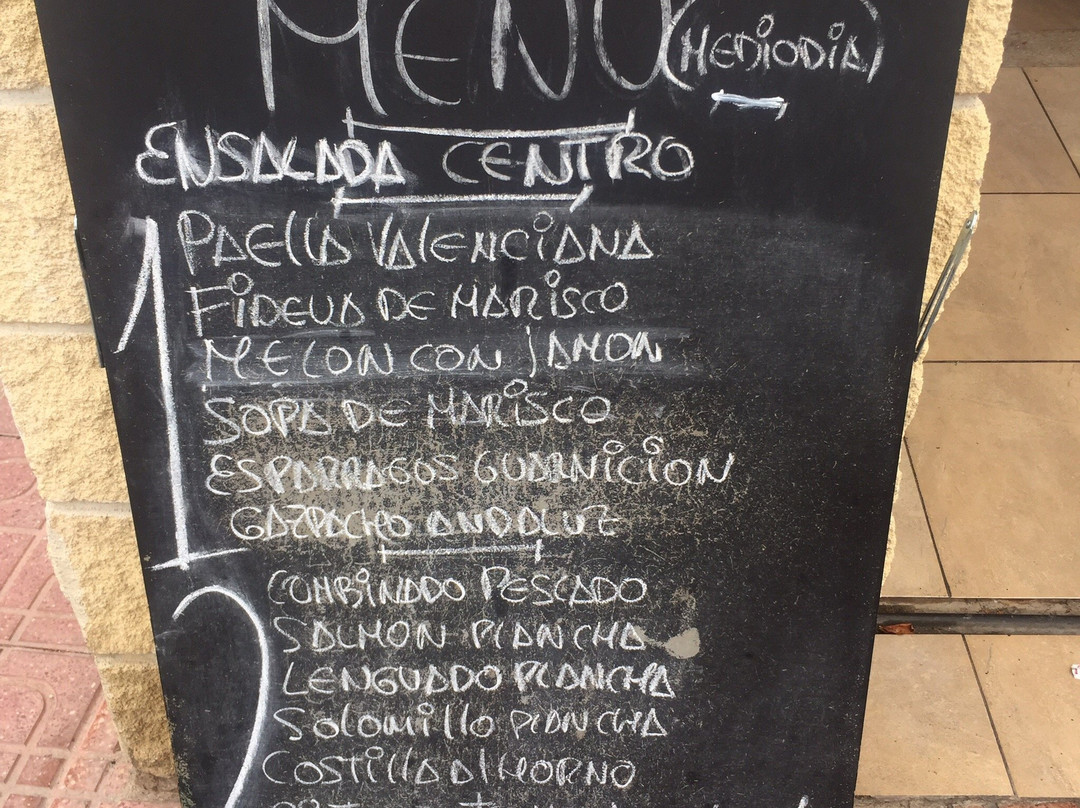 MENU (MEDIODIA)
ENSALADA CENTRO
1
PAELLA VALENCIANA
FIDEUA DE MARISCO
MELON CON JAMON
SOPA DE MARISCO
ESPARRAGOS GUARNICION
GAZPACHO ANDALUZ
2
COMBINADO PESCADO
SALMON PLANCHA
LENGUADO PLANCHA
SOLOMILLO PLANCHA
COSTILLA AL HORNO